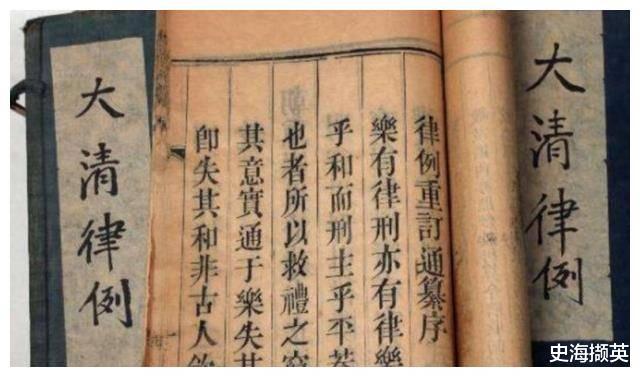 大清律例
律例重訂通纂序
樂有律刑亦有律樂
乎和而刑主乎平
也者所以救禮之窮
其意實通于樂失其
卽失其和非古人
大清律例
史海撷英